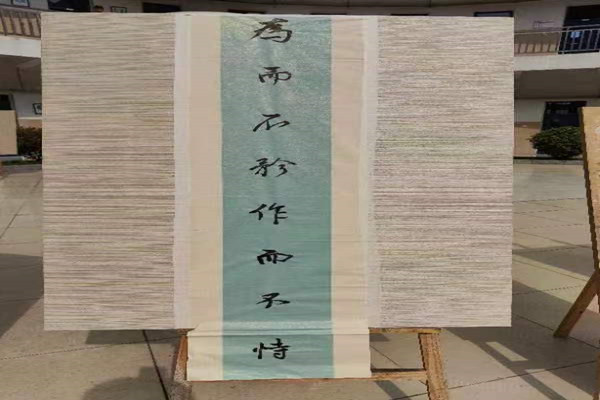 為而不矜作而不恃